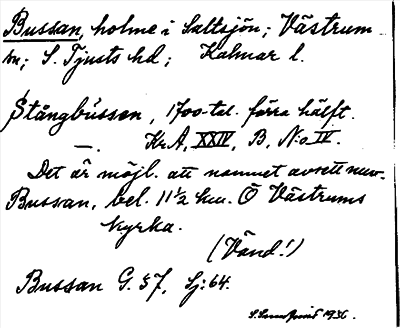 Bussan, holme i Saltsjön; Västrum
sn; S. Tjusts hd; Kalmar l.
Stångbüssen, 1700-tal. förra hälft.
—. Kr. A, XXIV, B, No IV.
Det är möjl. att namnet avsett nuv.
Bussan, bel. 11½ km. Ö Västrums
kyrka.
(Vänd!)
Bussan G. 57, Sj: 64.
1936.